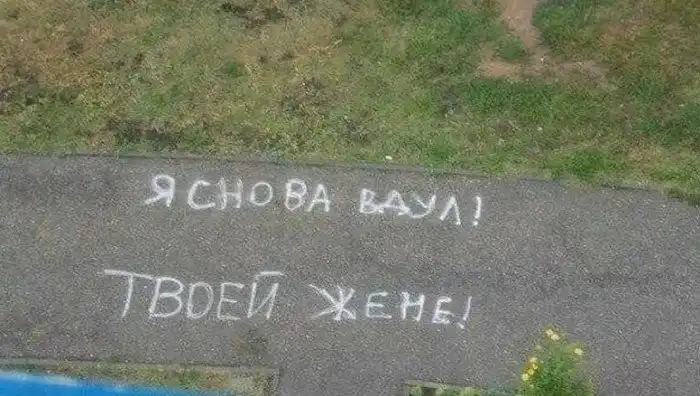 Я СНОВА ВДУЛ!
ТВОЕЙ ЖЕНЕ!